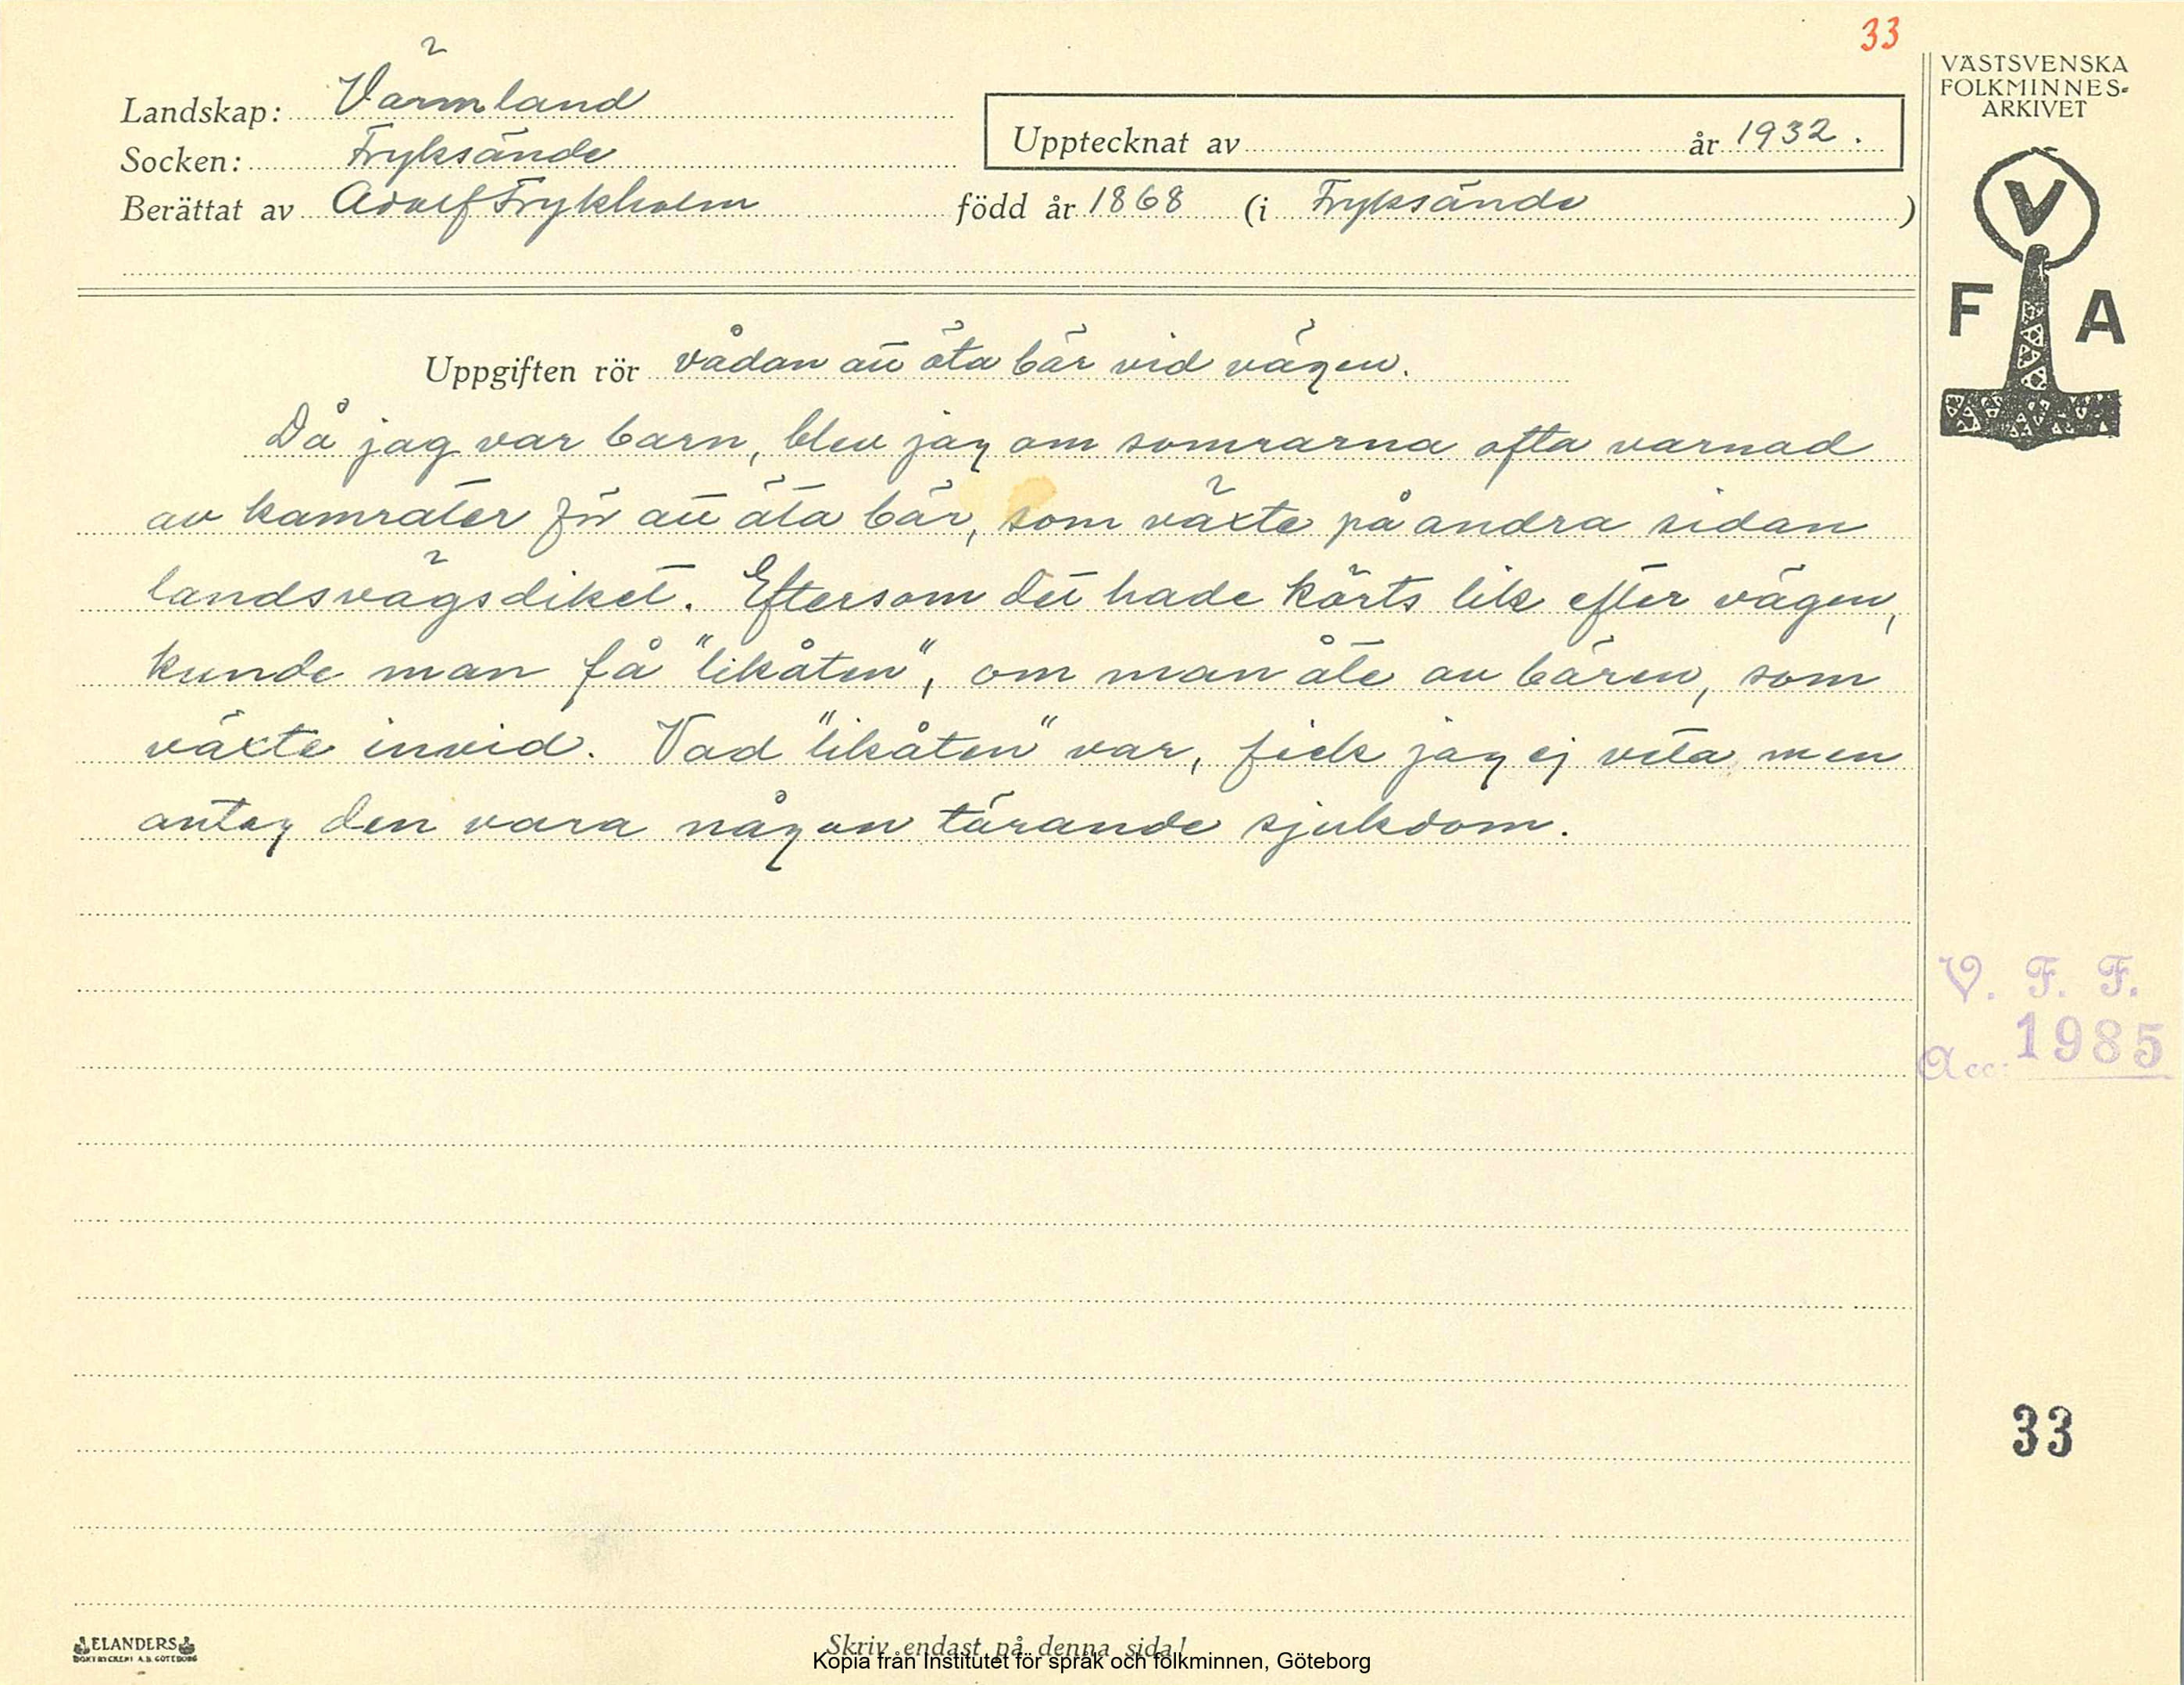 33
VÄSTSVENSKA
FOLKMINNES-
ARKIVET
Landskap: Värmland
Socken: Fryksände
Upptecknat av år 1932.
Berättat av Adolf Frykholm född år 1868 (i Fryksände)
V
F A
Uppgiften rör vådan att äta bär vid vägen.
Då jag var barn, blev jag om somrarna ofta varnad
av kamrater för att äta bär, som växte på andra sidan
landsvägsdiket. Eftersom det hade körts lik efter vägen,
kunde man få "likåten", om man åte av bären, som
växte invid. Vad "likåten" var, fick jag ej veta men
antog den vara någon tärande sjukdom.
V. F. F.
Acc: 1985
33
ELANDERS
BOKTRYCKERI A.B. GÖTEBORG
Skriv endast på denna sida!
Kopia från Institutet för språk och folkminnen, Göteborg